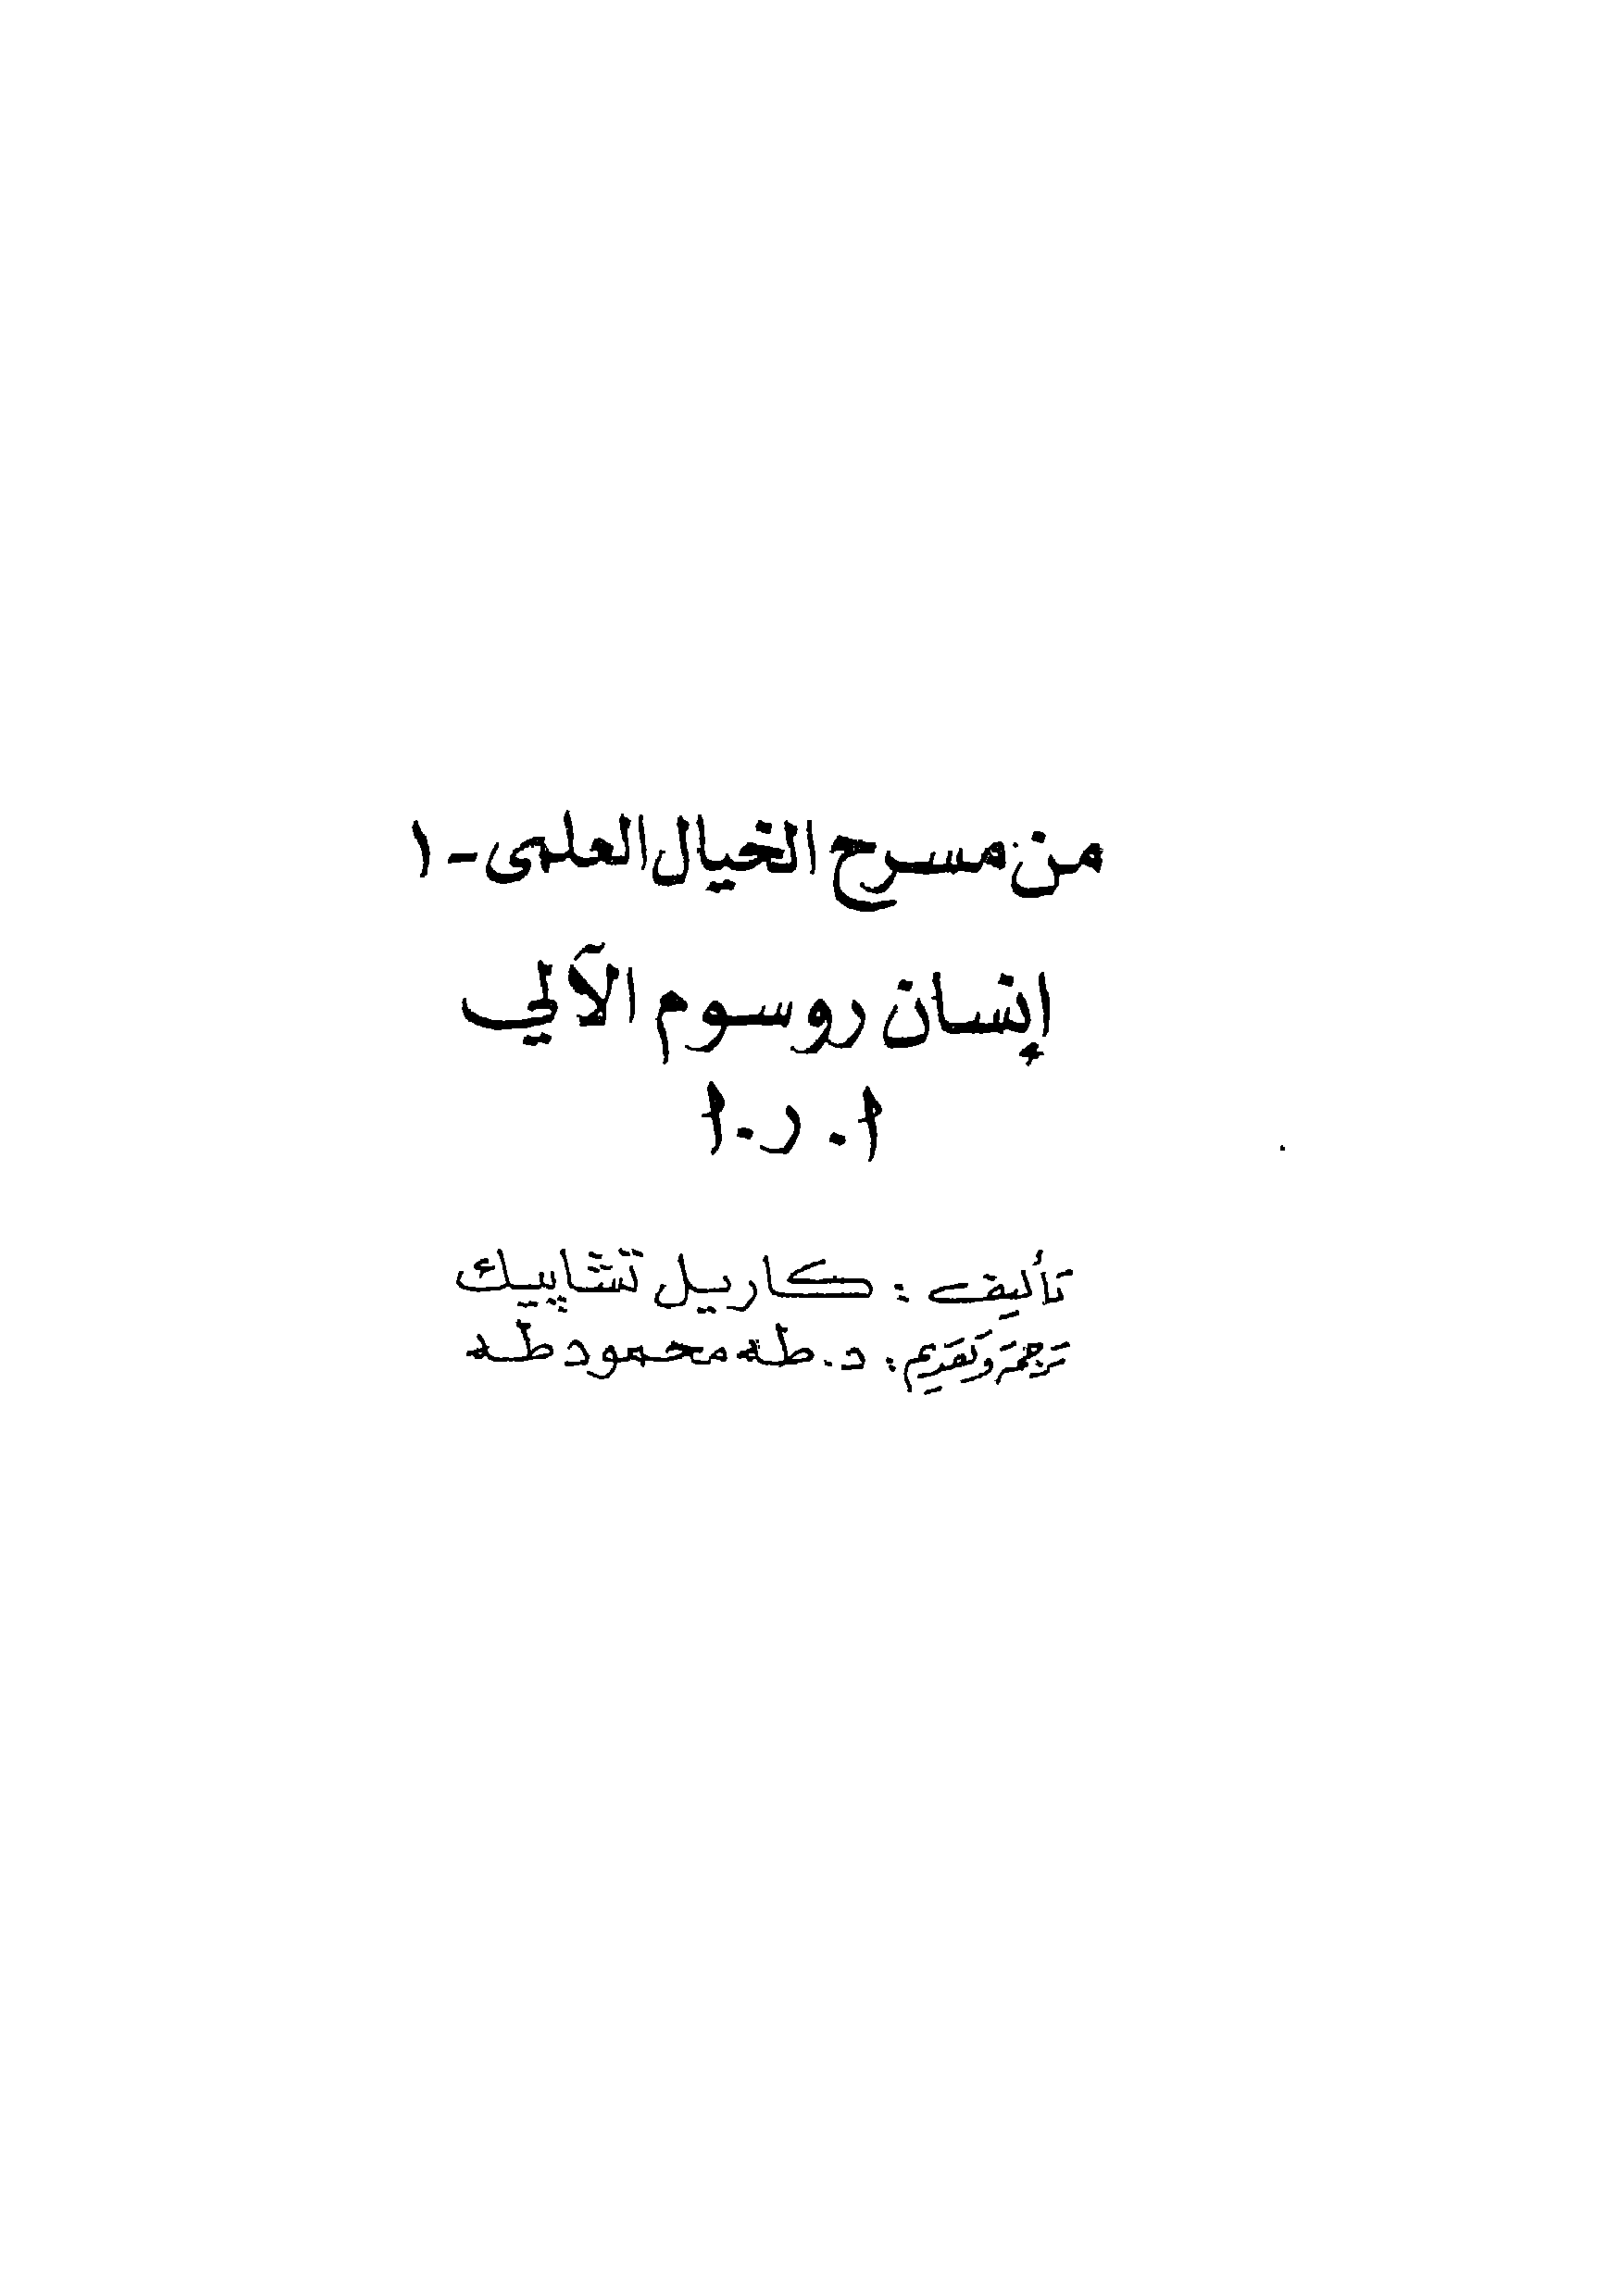 من مسرح الخيال العلمى - ١
إنسان روسوم الآلي
ا . ر . ا
تأليف : كاريل تشابيك
ترجمة وتقديم : د . طه محمود طه